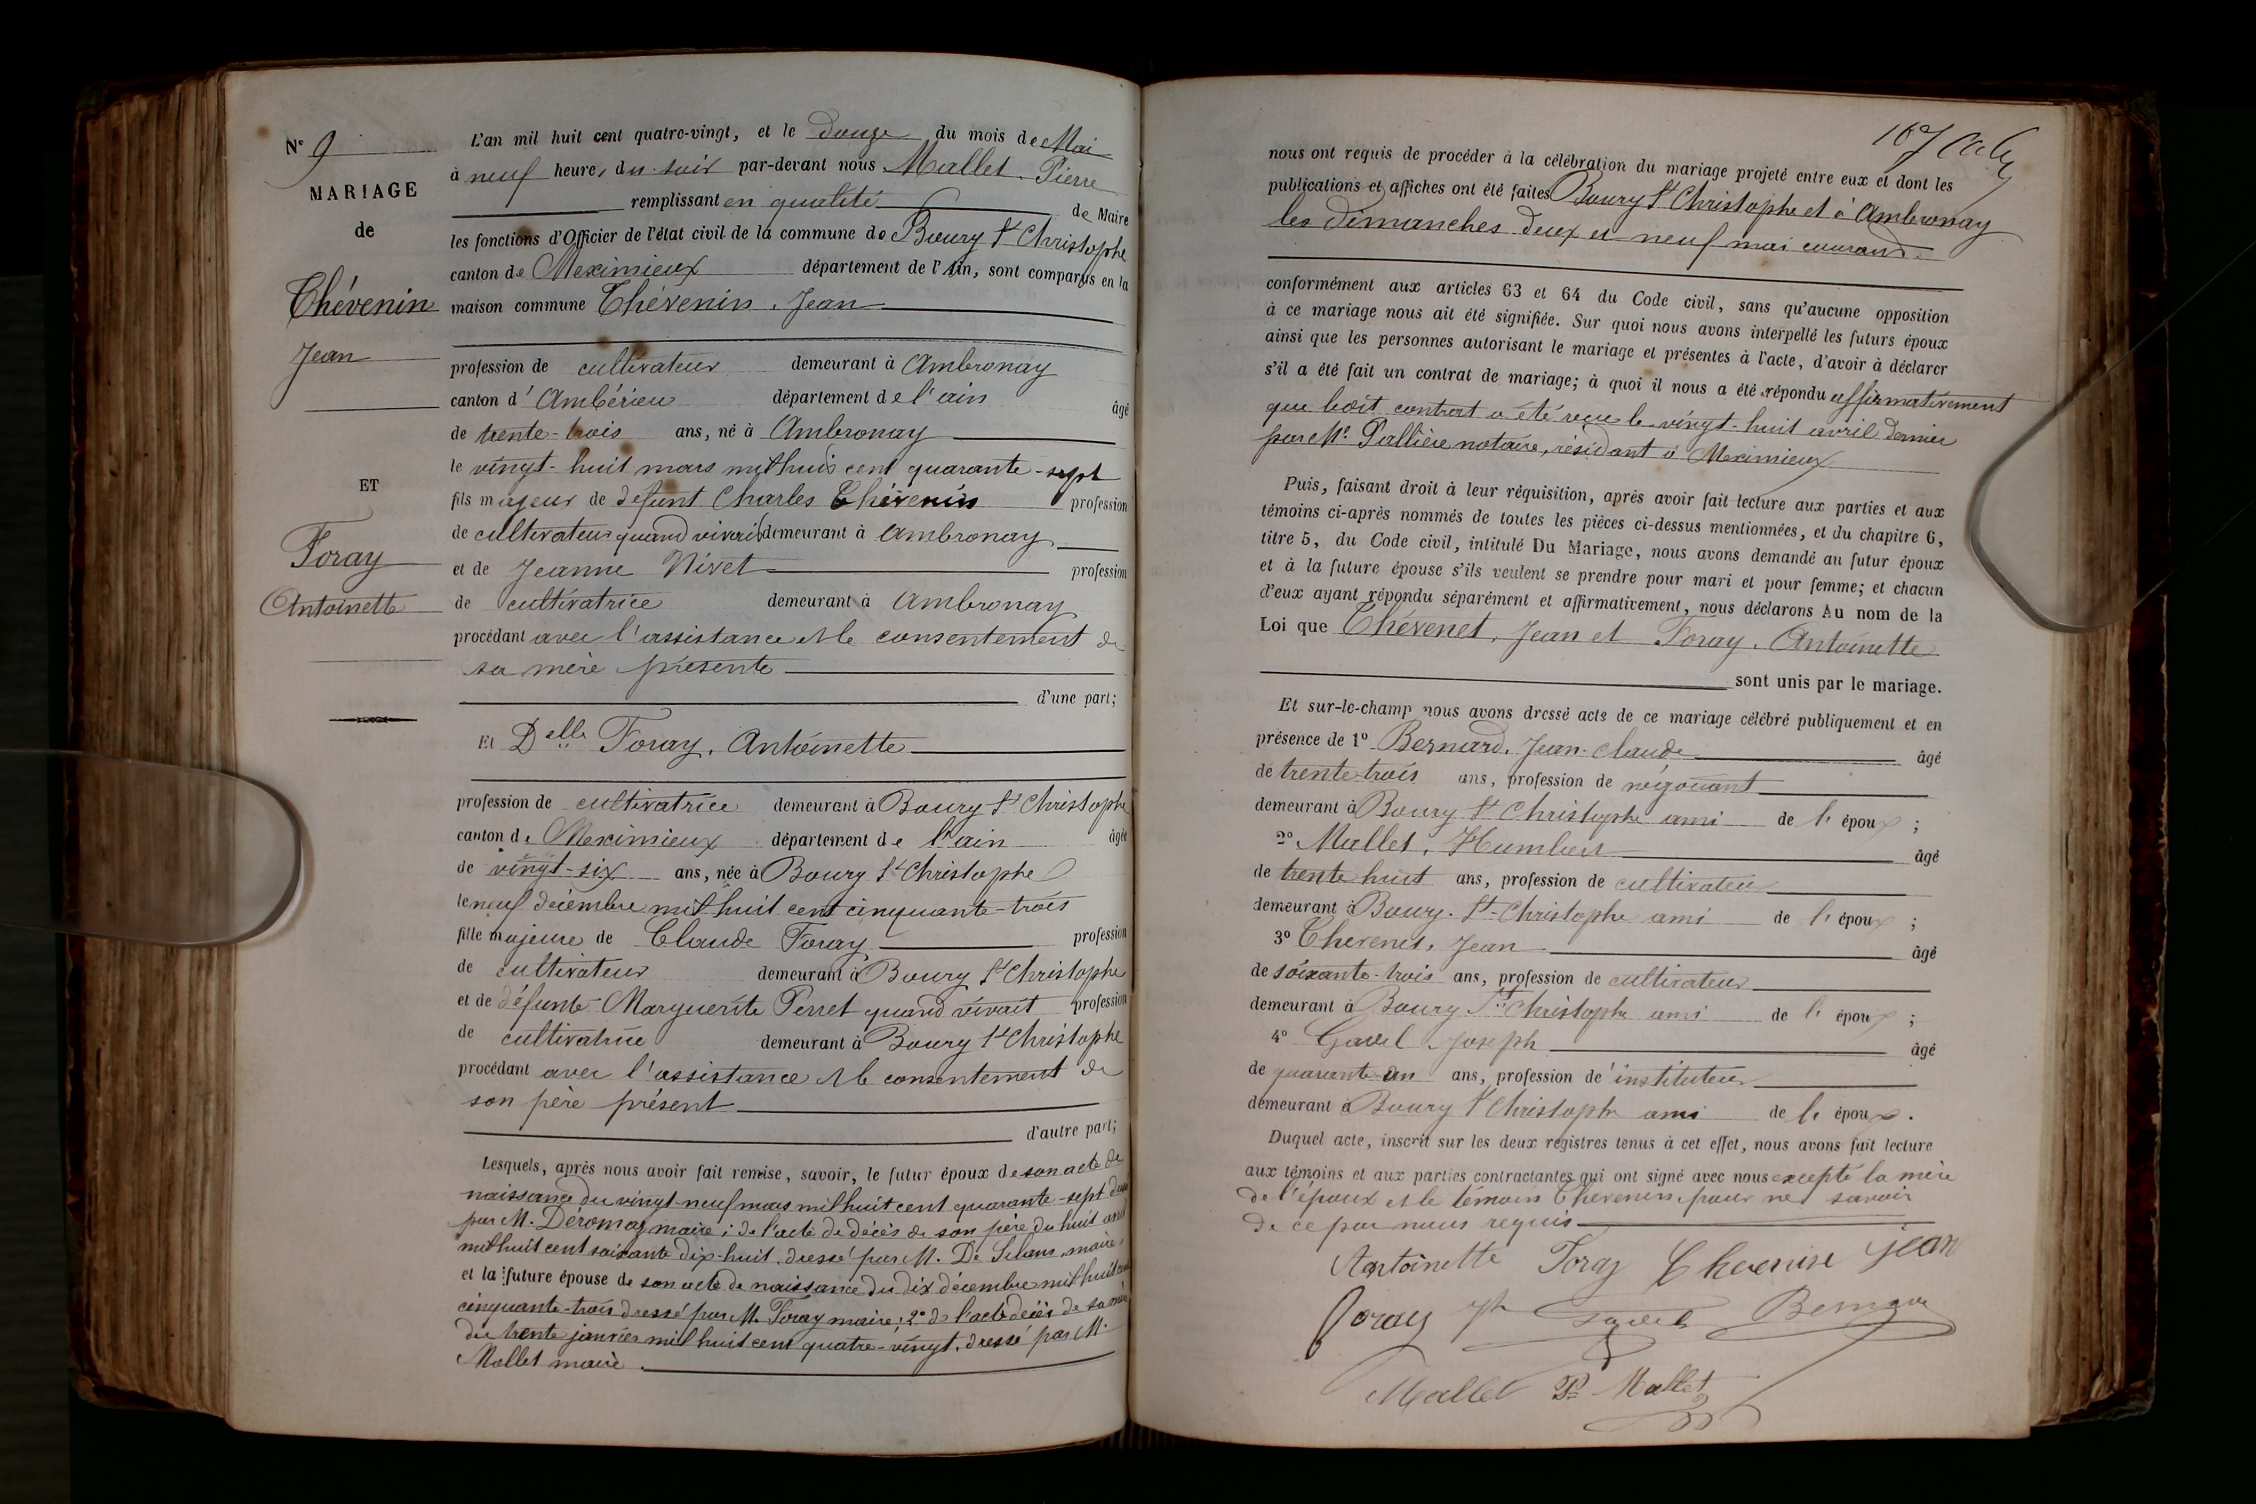 Nº 9
MARIAGE
de
Thévenin
Jean
ET
Foray
Antoinette
L'an mil huit cent quatre-vingt, et le douze du mois de Mai
à neuf heures du soir par-devant nous Mallet Pierre
remplissant en qualité de Maire
les fonctions d'Officier de l'état civil de la commune de Bourg St Christophe
canton de Meximieux département de l'Ain, sont comparus en la
maison commune Thévenin, Jean
profession de cultivateur demeurant à Ambronay
canton d'Ambérieu département de l'ain âgé
de trente-trois ans, né à Ambronay
le vingt-huit mars mil huit cent quarante-sept
fils majeur de défunt Charles Thévenin profession
de cultivateur quand vivait demeurant à Ambronay
et de Jeanne Nivet profession
de cultivatrice demeurant à Ambronay
procédant avec l'assistance et le consentement de
sa mère présente
d'une part;
Et Delle Foray, Antoinette
profession de cultivatrice demeurant à Bourg St Christophe
canton de Meximieux département de l'ain âgée
de vingt-six ans, née à Bourg St Christophe
le neuf décembre mil huit cent cinquante-trois
fille majeure de Claude Foray profession
de cultivateur demeurant à Bourg St Christophe
et de défunte Marguerite Perret quand vivait profession
de cultivatrice demeurant à Bourg St Christophe
procédant avec l'assistance et le consentement de
son père présent
d'autre part;
Lesquels, après nous avoir fait remise, savoir, le futur époux de son acte de
naissance du vingt-neuf mars mil huit cent quarante-sept
par M. Déromas maire; de l'acte de décès de son père du huit
mil huit cent soixante dix-huit, dressé par M. De maire,
et la future épouse de son acte de naissance du dix décembre mil huit cent
cinquante-trois dressé par M. Foray maire; 2º de l'acte décès de sa mère
du trente janvier mil huit cent quatre-vingt, dressé par M.
Mallet maire.
107
nous ont requis de procéder à la célébration du mariage projeté entre eux et dont les
publications et affiches ont été faites Bourg St Christophe et à Ambronay
les dimanches deux et neuf mai courant.
conformément aux articles 63 et 64 du Code civil, sans qu'aucune opposition
à ce mariage nous ait été signifiée. Sur quoi nous avons interpellé les futurs époux
ainsi que les personnes autorisant le mariage et présentes à l'acte, d'avoir à déclarer
s'il a été fait un contrat de mariage; à quoi il nous a été répondu affirmativement
que ledit contrat a été reçu le vingt-huit avril dernier
par Me Pallière notaire, résidant à Meximieux
Puis, faisant droit à leur réquisition, après avoir fait lecture aux parties et aux
témoins ci-après nommés de toutes les pièces ci-dessus mentionnées, et du chapitre 6,
titre 5, du Code civil, intitulé Du Mariage, nous avons demandé au futur époux
et à la future épouse s'ils veulent se prendre pour mari et pour femme; et chacun
d'eux ayant répondu séparément et affirmativement, nous déclarons Au nom de la
Loi que Thévenet, Jean et Foray, Antoinette
sont unis par le mariage.
Et sur-le-champ nous avons dressé acte de ce mariage célébré publiquement et en
présence de 1º Bernard, Jean-Claude âgé
de trente-trois ans, profession de négociant
demeurant à Bourg St Christophe ami de l' époux ;
2º Mallet, Humbert âgé
de trente huit ans, profession de cultivateur
demeurant à Bourg-St-Christophe ami de l' époux ;
3º Thevenet, Jean âgé
de soixante-trois ans, profession de cultivateur
demeurant à Bourg St Christophe ami de l' époux ;
4º Gavel Joseph âgé
de quarante-un ans, profession d'instituteur
demeurant à Bourg St Christophe ami de l' époux.
Duquel acte, inscrit sur les deux registres tenus à cet effet, nous avons fait lecture
aux témoins et aux parties contractantes qui ont signé avec nous excepté la mère
de l'époux et le témoin Thevenin, pour ne savoir
de ce par nous requis
Antoinette Foray Thevenin jean
Foray Bernard
Mallet Pre Mallet